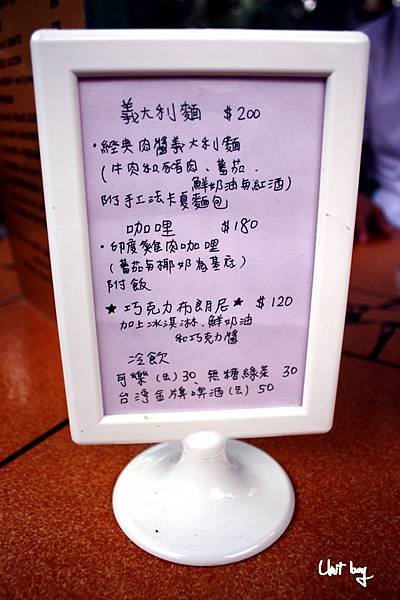 義大利麵 $200
·經典肉醬義大利麵
(牛肉和豬肉、蕃茄、
鮮奶油与紅酒)
附手工法卡夏麵包
咖哩 $180
·印度雞肉咖哩
(蕃茄与椰奶為基底)
附飯
★巧克力布朗尼★ $120
加上冰淇淋、鮮奶油
和巧克力醬
冷飲
可樂(法)30、無糖綠茶 30
台灣金牌啤酒(法) 50